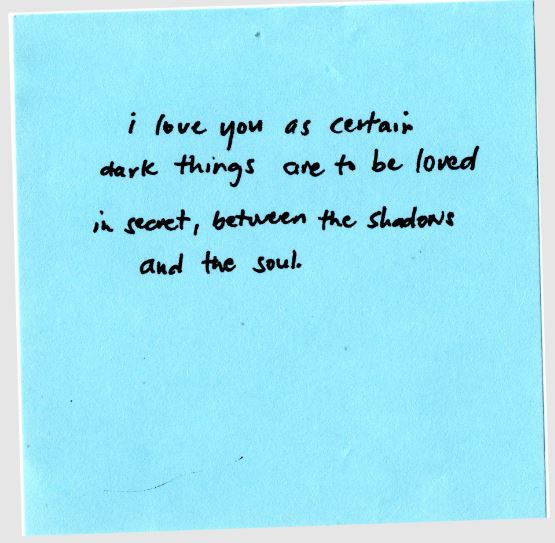 i love you as certain
dark things are to be loved
in secret, between the shadows
and the soul.